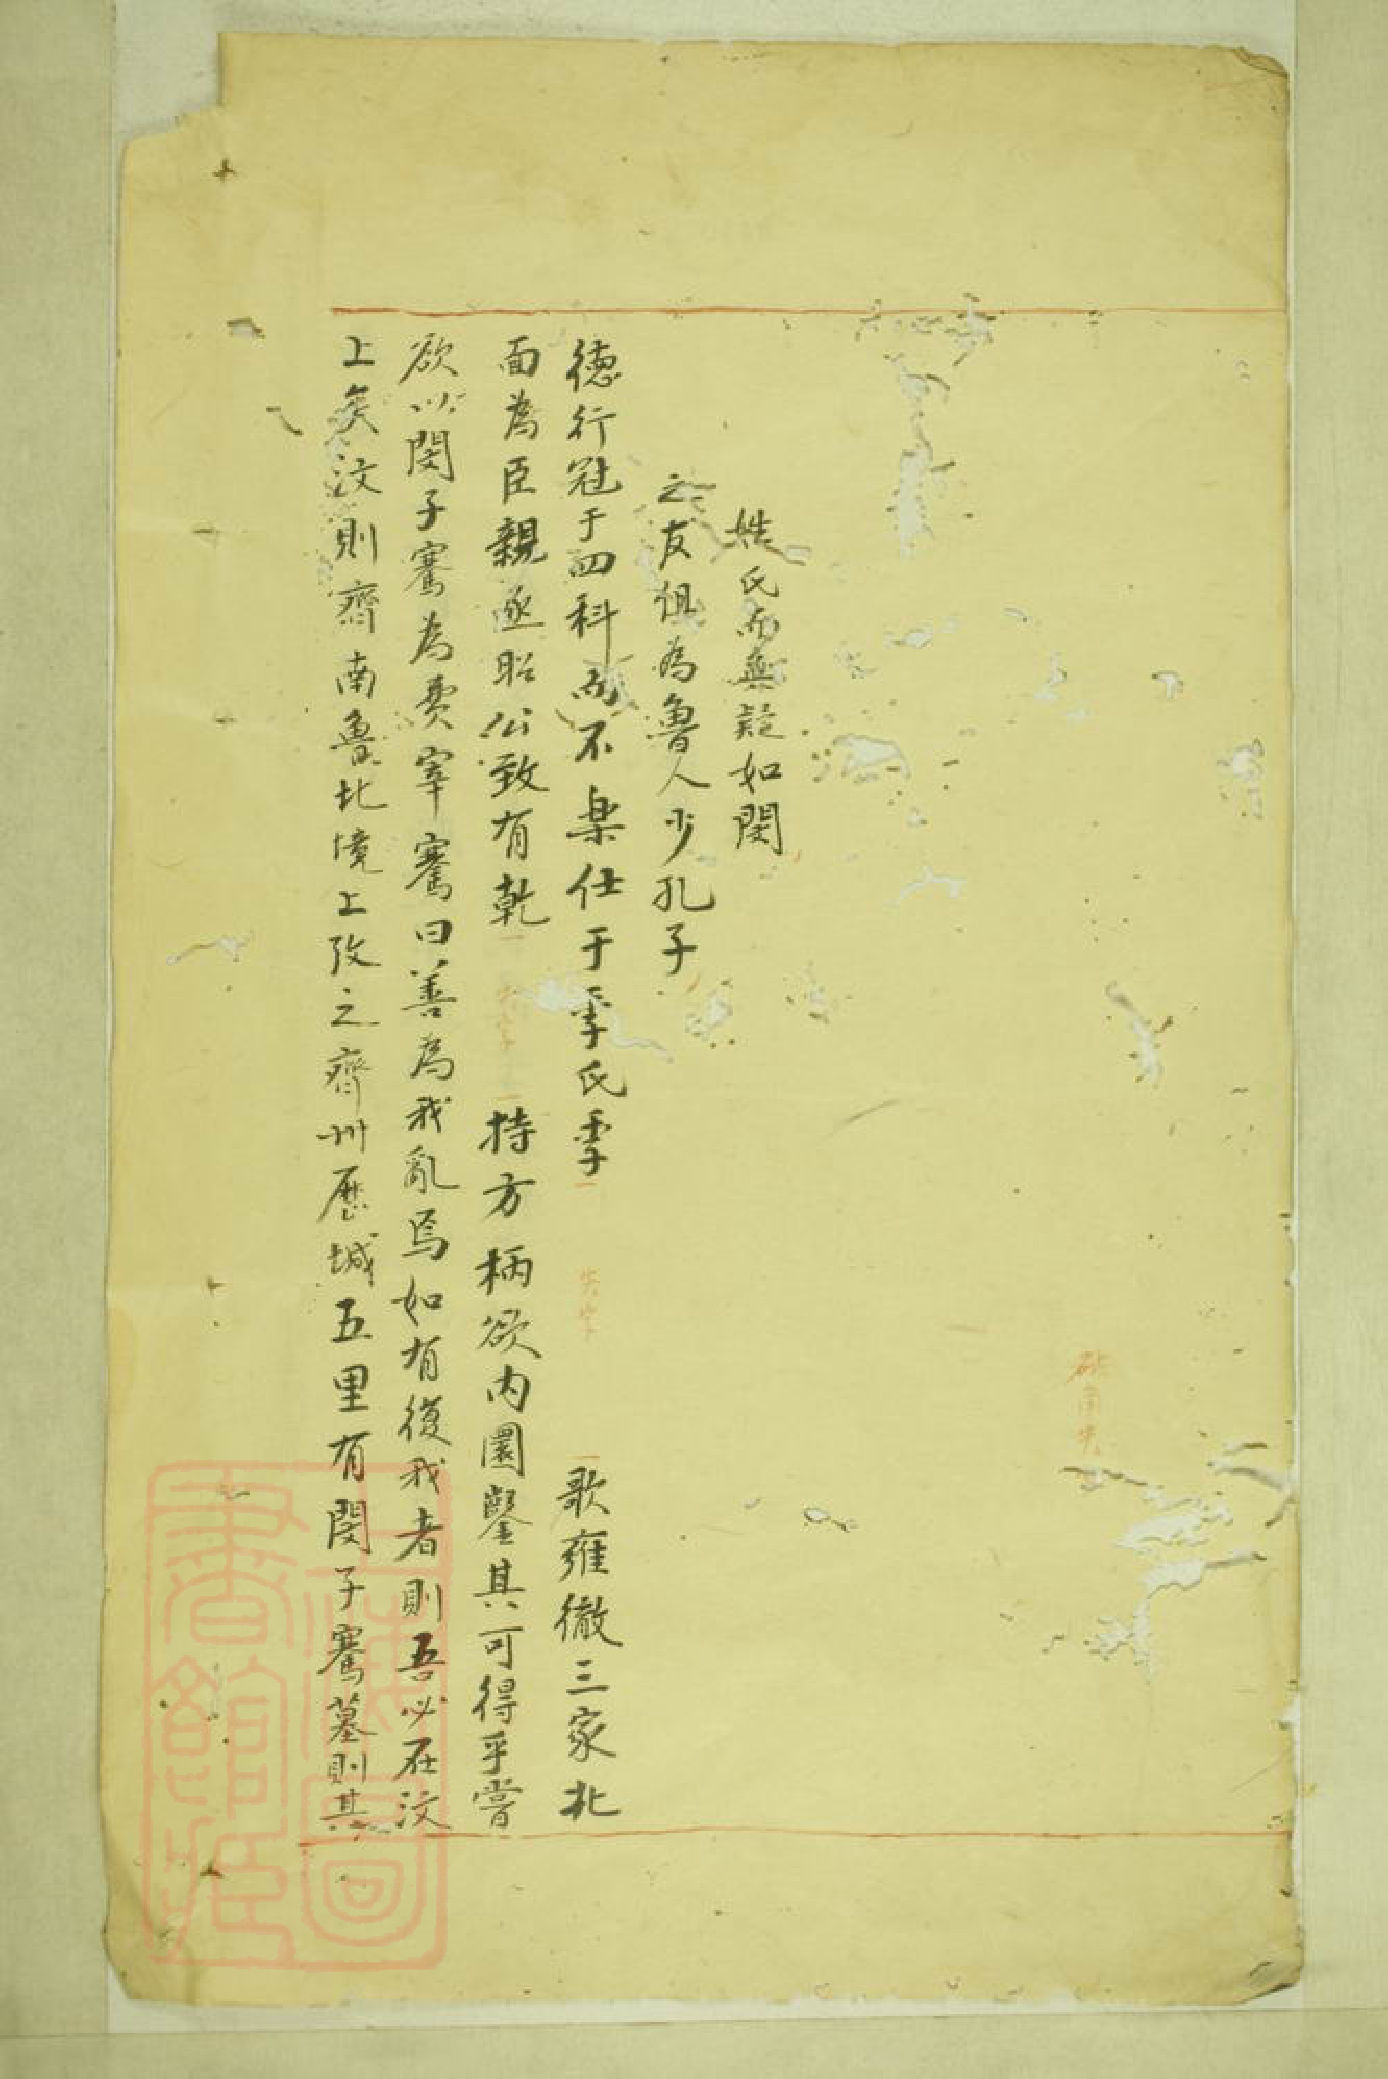 姓氏而無疑如閔
之友俱為魯人少孔子
徳行冠于四科而不楽仕于季氏季 失字 歌雍徹三家北
面為臣親逐昭公致有乾 失字 持方柄欲内圜鑿其可得乎嘗
欲以閔子騫為費宰騫曰善為我亂焉如有復我者則吾必在汶
上矣汶則齊南魯北境上攷之齊州歷城五里有閔子騫墓則其